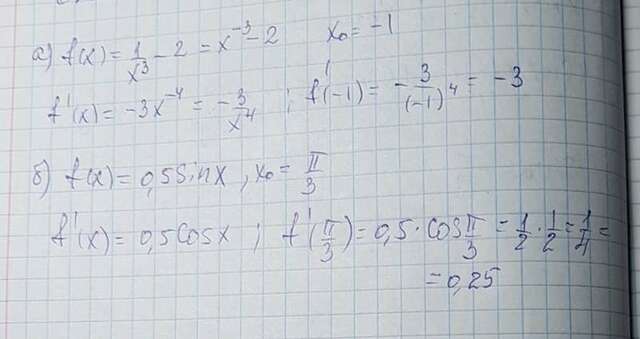 а) f(x) = 1/x³ - 2 = x⁻³ - 2 x₀ = -1
f'(x) = -3x⁻⁴ = -3/x⁴ ; f'(-1) = -3/(-1)⁴ = -3
б) f(x) = 0,5 sin x, x₀ = π/3
f'(x) = 0,5 cos x ; f'(π/3) = 0,5 · cos π/3 = 1/2 · 1/2 = 1/4 =
= 0,25